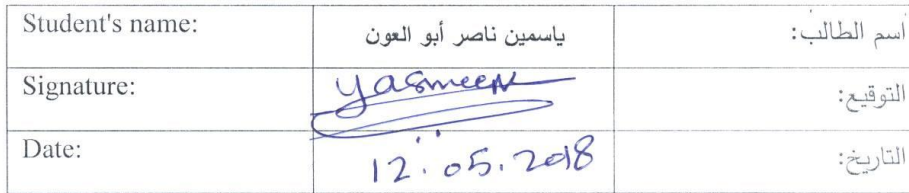 Student's name: ياسمين ناصر أبو العون أسم الطالب:
Signature: yasmeen التوقيع:
Date: 12.05.2018 التاريخ: